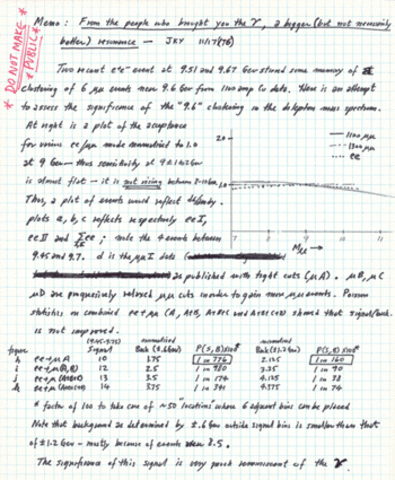 * DO NOT MAKE *
* PUBLIC *
Memo: From the people who brought you the ϒ, a bigger (but not necessarily
better) resonance — JKY 11/17(76)
Two recent e⁺e⁻ event at 9.51 and 9.67 GeV stirred some memory of a
clustering of 6 μμ events near 9.6 GeV from 1100 amp Cu data. Here is an attempt
to assess the significance of the "9.6" clustering in the dilepton mass spectrum.
At right is a plot of the acceptance
for various ee/μμ mode normalized to 1.0
at 9 GeV — thus sensitivity at 9±1.2 GeV
is almost flat — it is not rising between
Thus, a plot of events would reflect dσ/dm dy.
plots a, b, c reflects respectively eeI,
eeII and Σee; note the 4 events between
9.45 and 9.7. d is the μμI data
as published with tight cuts (μA). μB, μC
μD are progressively relaxed μμ cuts in order to gain more μμ events. Poisson
statistics on combined ee+μμ (A, A+B, A+B+C and A+B+C+D) showed that signal/back.
is not improved.
2.0
1.0
1100 μμ
1300 μμ
ee
7 8 9 10 11
Mℓℓ →
figure (9.45-9.75) Signal normalized Back (±.6 GeV) P(S,B)x100* normalized Back (±1.2 GeV) P(S,B)x100*
h ee+μA 10 1.75 1 in 776 2.125 1 in 160
i ee+μ(A,B) 12 2.5 1 in 980 3.25 1 in 90
j ee+μ(A+B+C) 13 3.5 1 in 174 4.125 1 in 78
k ee+μ(A+B+C+D) 14 3.75 1 in 241 4.375 1 in 74
* factor of 100 to take care of ~50 "locations" where 6 adjacent bins can be placed
Note that background as determined by ±.6 GeV outside signal bins is smaller than that
of ±1.2 GeV — mostly because of events near 8.5.
The significance of this signal is very much reminiscent of the ϒ.